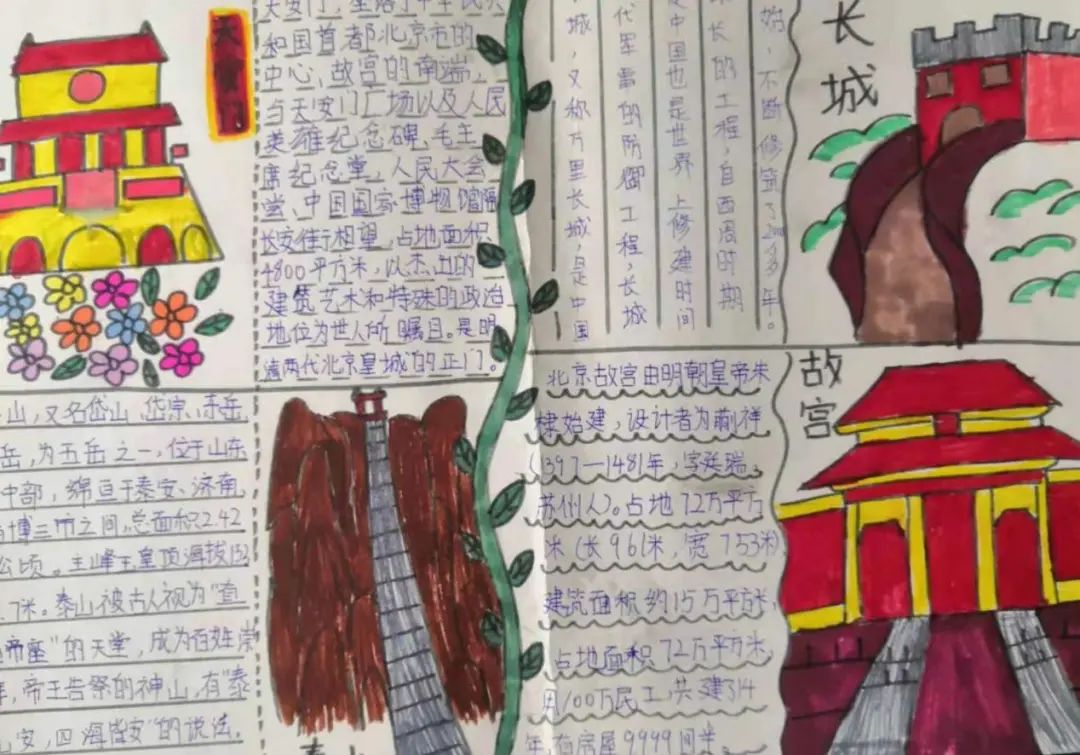 天安门
天安门，坐落于中华人民共
和国首都北京市的
中心，故宫的南端，
与天安门广场以及人民
英雄纪念碑，毛主
席纪念堂，人民大会
堂、中国国家博物馆隔
长安街相望，占地面积
4800平方米，以杰出的
建筑艺术和特殊的政治
地位为世人所瞩目。是明
清两代北京皇城的正门。
山，又名岱山、岱宗、东岳
岳，为五岳之一，位于山东
中部，绵亘于泰安、济南、
博三市之间，总面积2.42
公顷。主峰玉皇顶海拔153
.7米。泰山被古人视为"直
帝座"的天堂，成为百姓崇
拜，帝王告祭的神山，有"泰
山安，四海皆安"的说法。
泰山
长城
始，不断修筑了2000多年。
长的工程，自西周时期
中国也是世界上修建时间
代军需的防御工程，长城
城，又称万里长城，是中国
故宫
北京故宫由明朝皇帝朱
棣始建，设计者为蒯祥
（1397—1481年，字廷瑞，
苏州人）。占地72万平方
米（长961米，宽753米），
建筑面积约15万平方米，
占地面积72万平方米，
用100万民工，共建314
年，有房屋9999间半